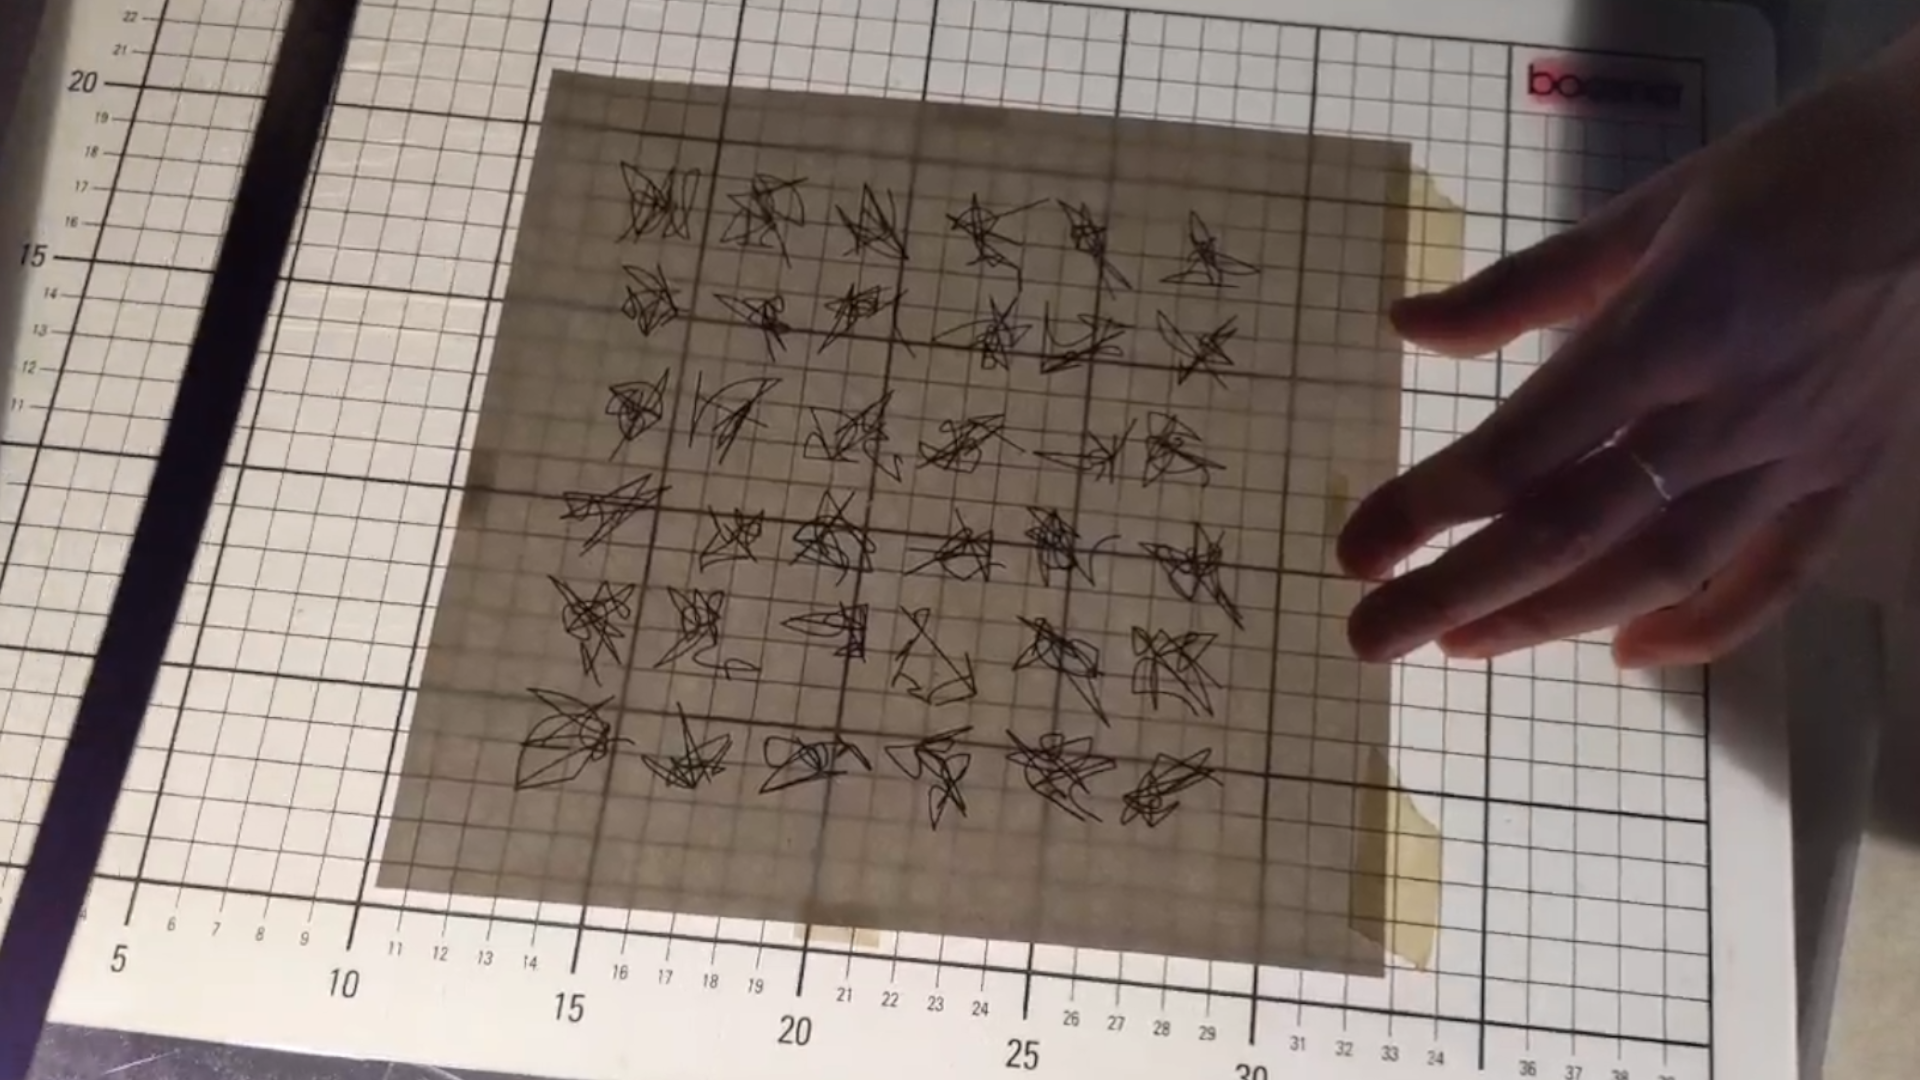 22
21
20
19
18
17
16
15
14
13
12
11
5 6 7 8 9 10 11 12 13 14 15 16 17 18 19 20 21 22 23 24 25 26 27 28 29 30 31 32 33 34 36 37 38